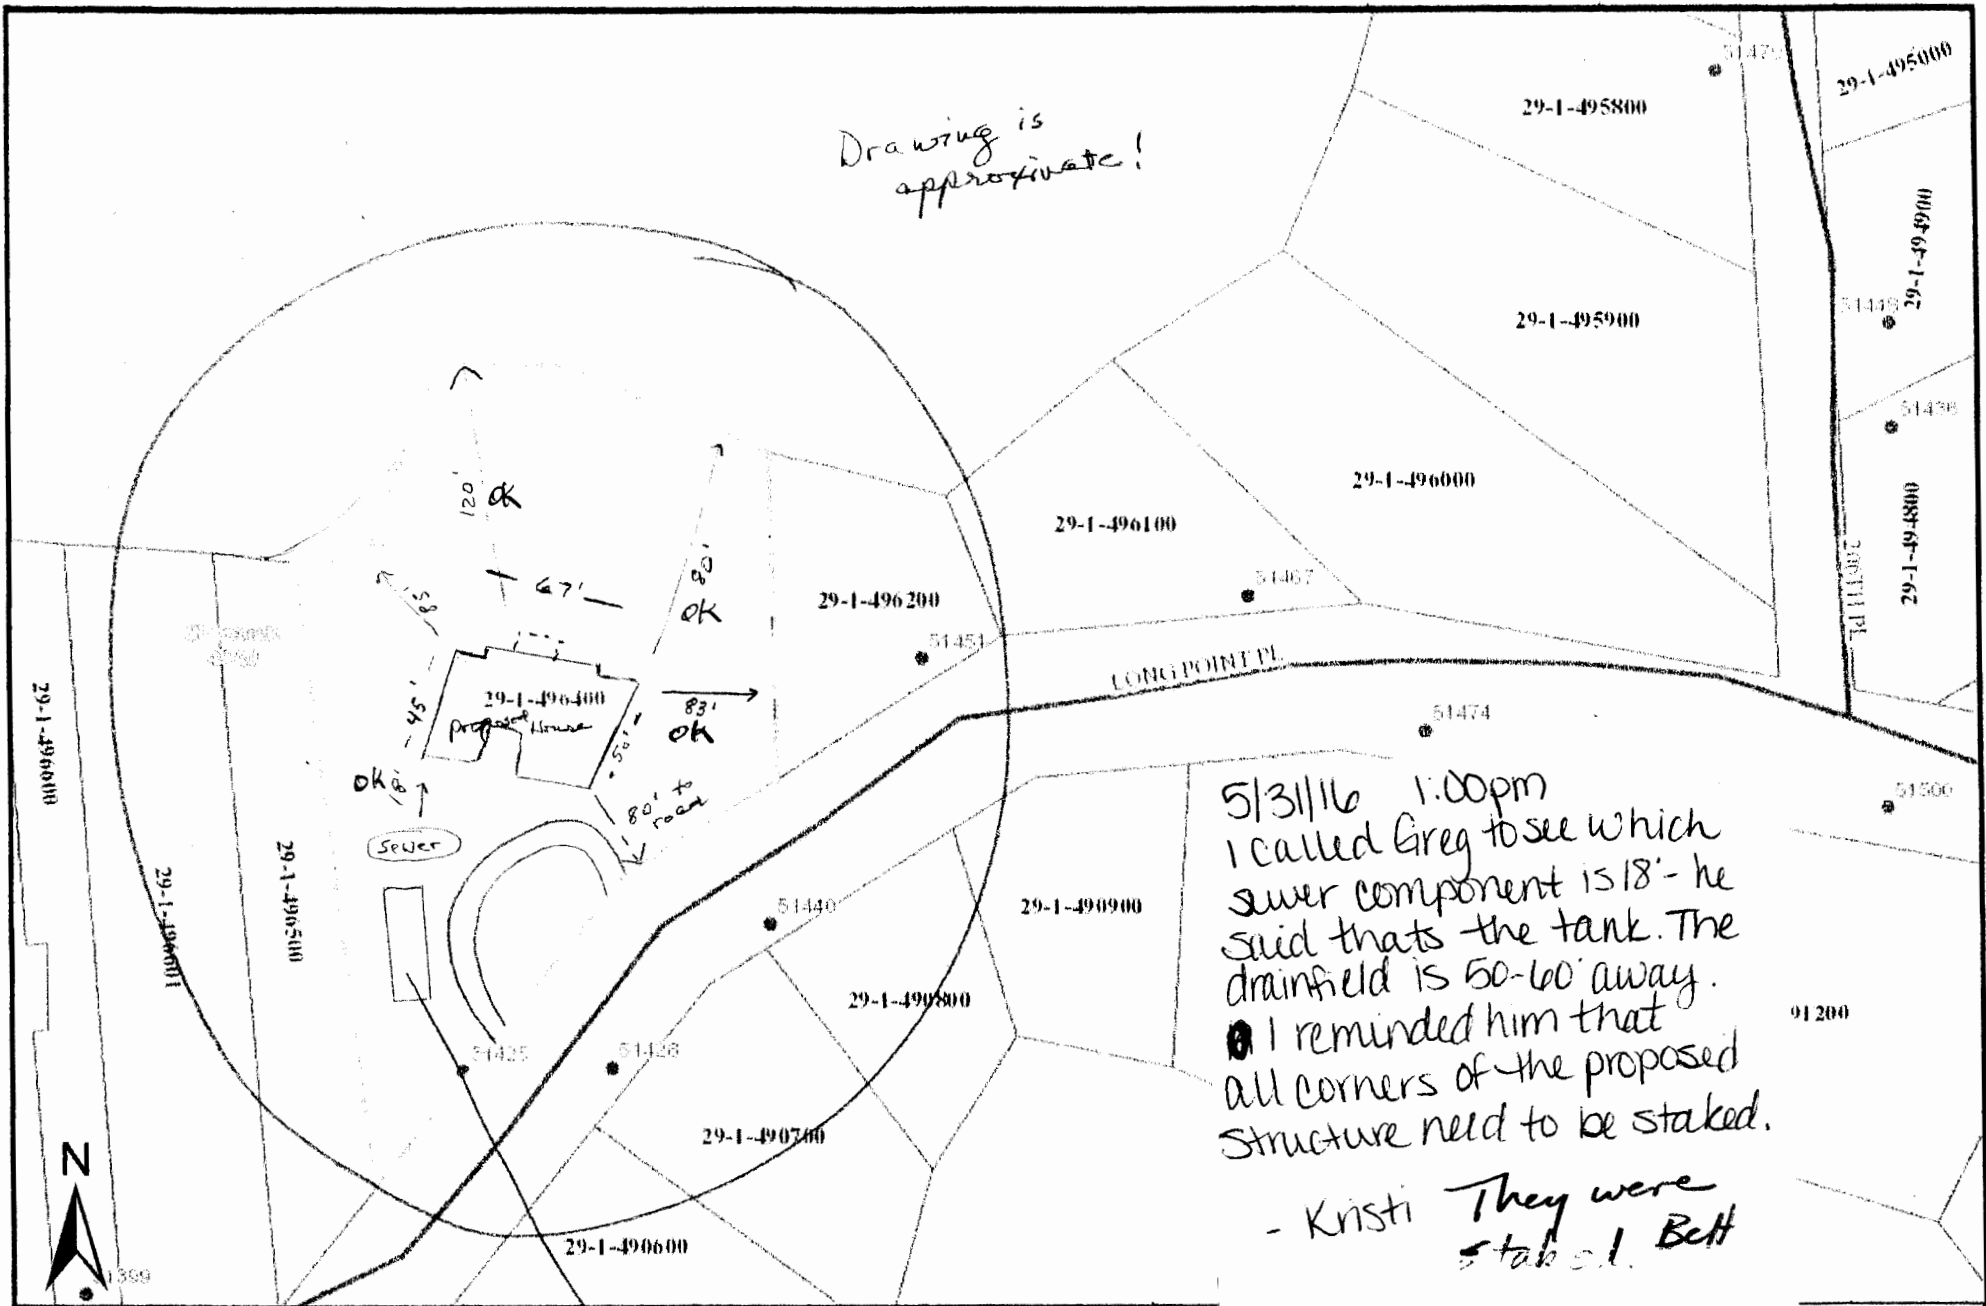 Drawing is
approximate!
29-1-495800
29-1-495000
29-1-494900
51449
29-1-495900
51436
29-1-494800
206TH PL
29-1-496000
29-1-496100
51467
120'
OK
67'
80'
OK
29-1-496200
51451
LONG POINT PL
58'
45'
29-1-496400
proposed House
50'
83'
OK
OK 18'
80' to
road
sewer
29-1-496600
29-1-496601
29-1-496500
51474
51500
51440
29-1-490900
29-1-490800
91200
51425
51428
29-1-490700
29-1-490600
N
51399
5/31/16 1:00pm
I called Greg to see which
sewer component is 18' - he
said thats the tank. The
drainfield is 50-60' away.
I reminded him that
all corners of the proposed
structure need to be staked.
- Kristi They were
staked. Beth